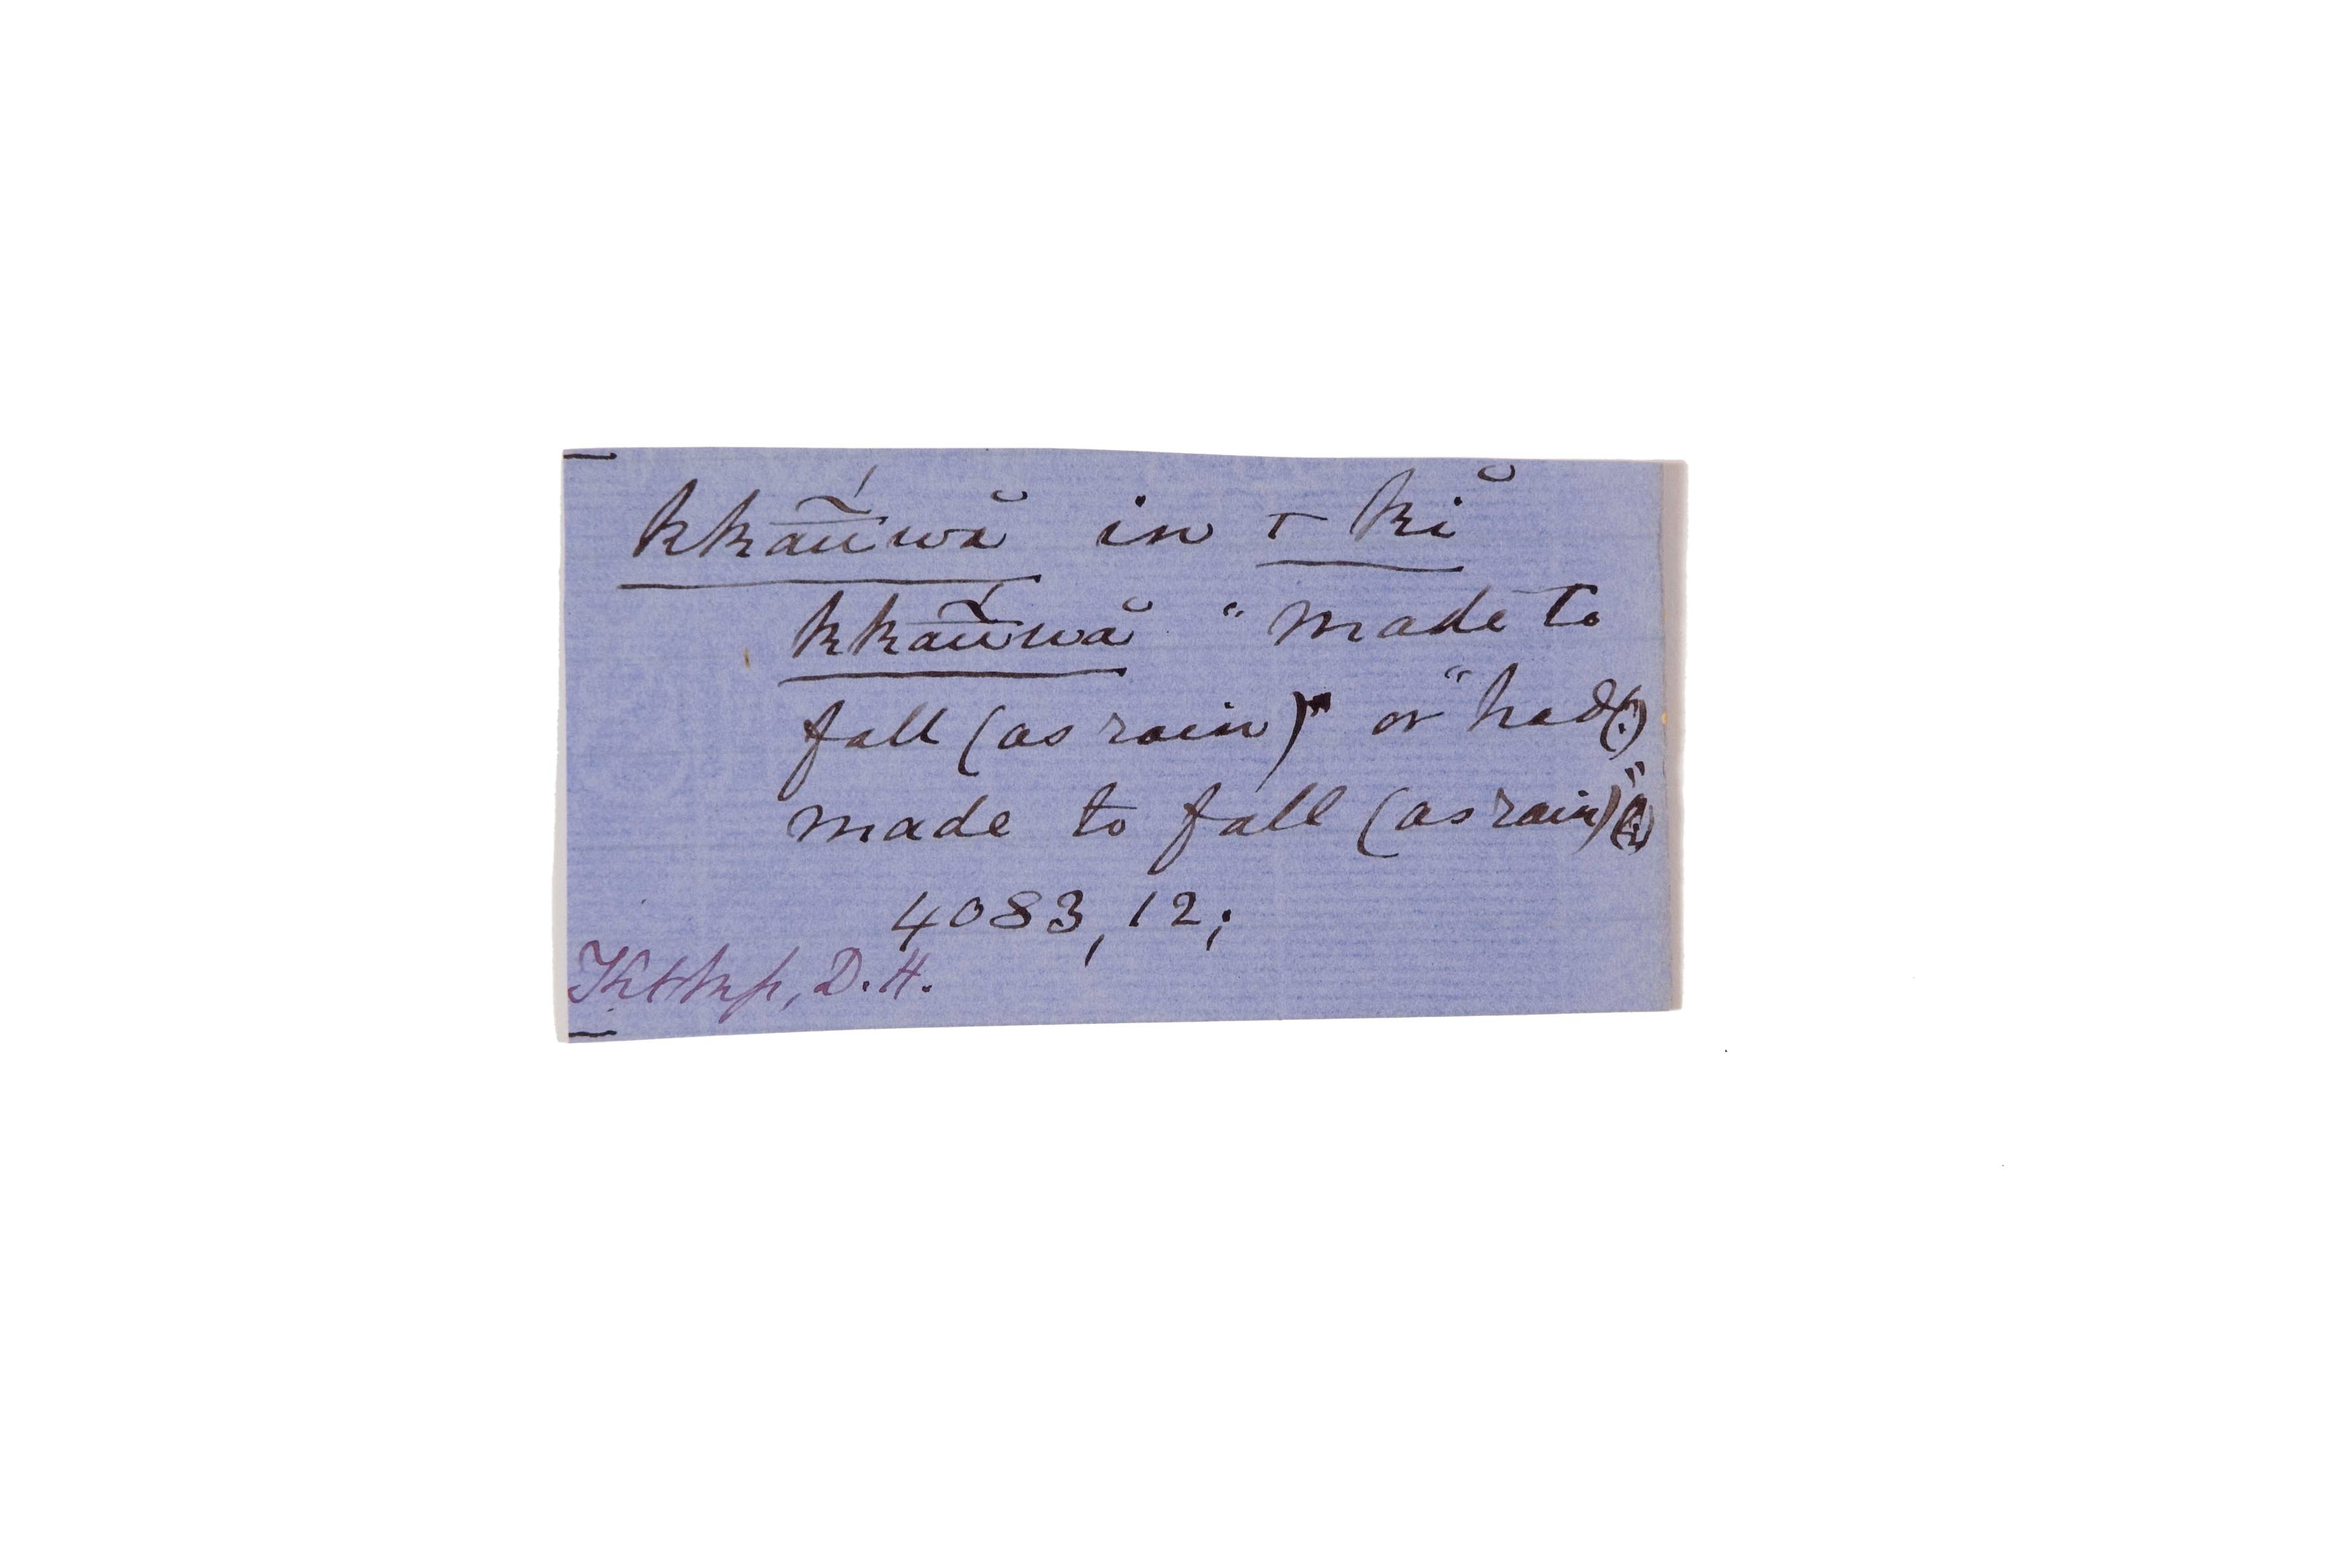 kkā̃́ūwă in ⊤ kĭ
kkā̃́ūwă "made to
fall (as rain)" or "had(?)
made to fall (as rain)"(?)
4083, 12;
D.H.